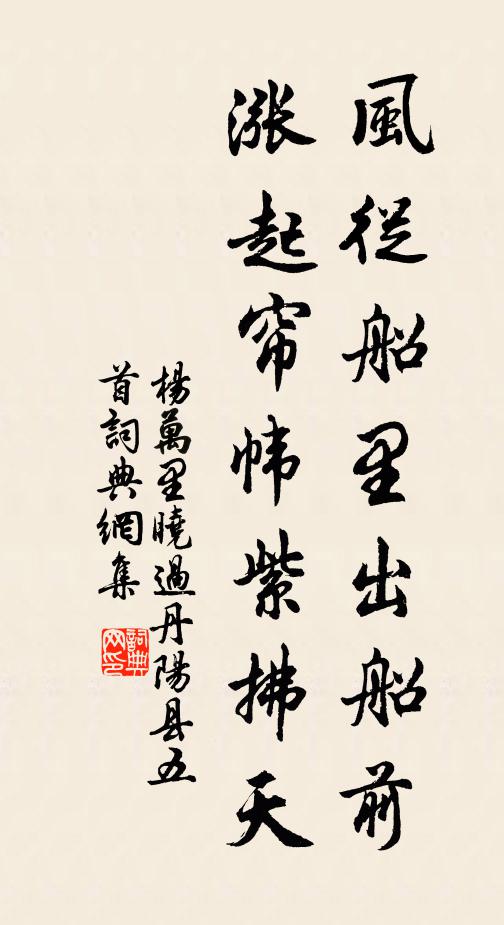 風從船里出船前
漲起帘帏紫拂天
楊萬里曉過丹陽县五
首詞典網集
詞典网印